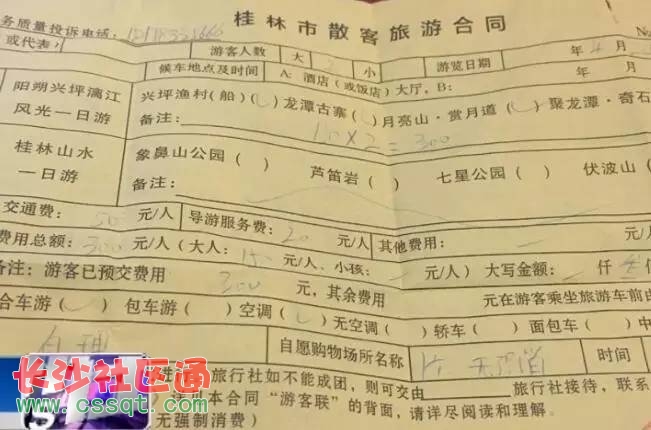 桂林市散客旅游合同
务质量投诉电话: No
或代表) 游客人数 大 2 小 游览日期 年 4 月
候车地点及时间 A: 酒店(或饭店)大厅, B:
阳朔兴坪漓江 兴坪渔村(船)( ) 龙潭古寨( ) 月亮山·赏月道( ) 聚龙潭·奇石
风光一日游 备注: 150×2=300
桂林山水 象鼻山公园( ) 芦笛岩( ) 七星公园( ) 伏波山(
一日游 备注:
交通费: 50 元/人 导游服务费: 20 元/人 其他费用: 元/人
费用总额: 300 元/人(大人: 150 元/人、小孩: 元/人) 大写金额: 仟
备注: 游客已预交费用 300 元,其余费用 元在游客乘坐旅游车前由
合车游( ) 包车游( ) 空调( ) 无空调( ) 轿车( ) 面包车( ) 中
自愿购物场所名称 时间
进 旅行社如不能成团,则可交由 旅行社接待,联系
本合同“游客联”的背面,请详尽阅读和理解。
无强制消费)
长沙社区通
www.cssqt.com